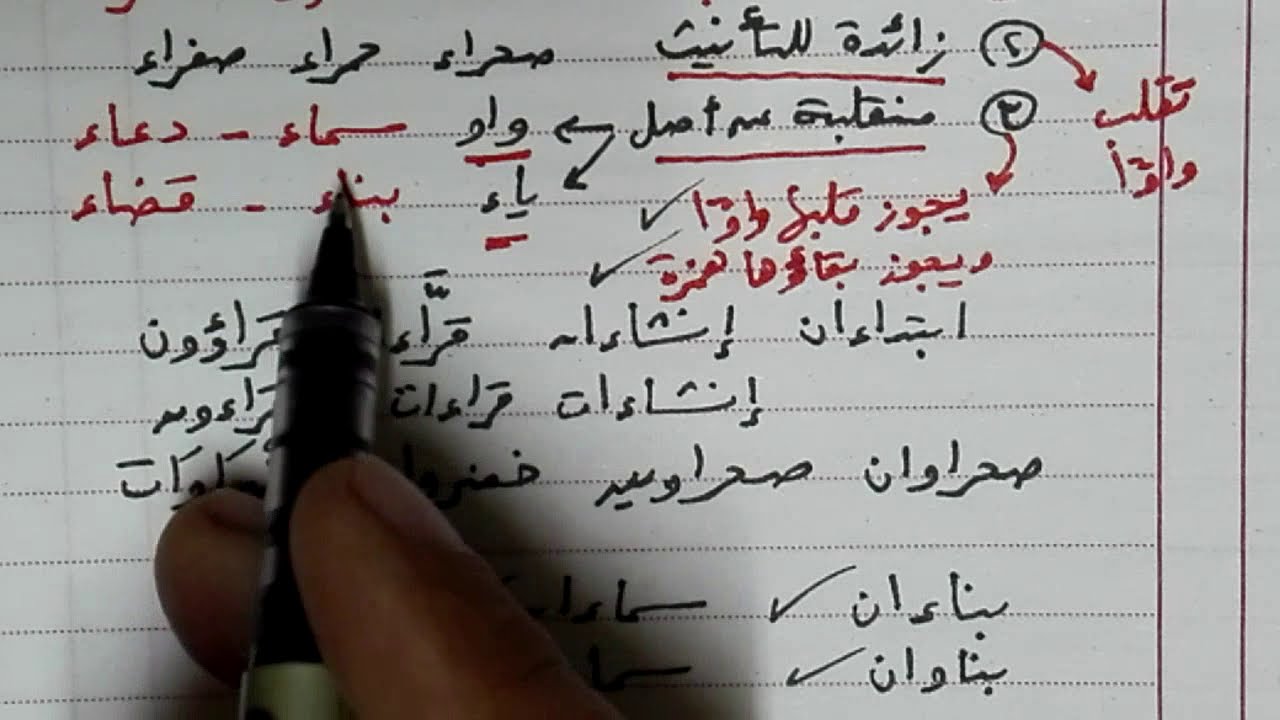 ٢ زائدة للتأنيث صحراء حمراء صفراء
تقلب واوًا
٣ منقلبة عن أصل واو سماء - دعاء
ياء بناء - قضاء
يجوز قلبها واوًا
ويجوز بقاؤها همزة
ابتداءان إنشاءان قرَّاء
إنشاءات قراءات
صحراوان صحراوين
بناءان
بناوان